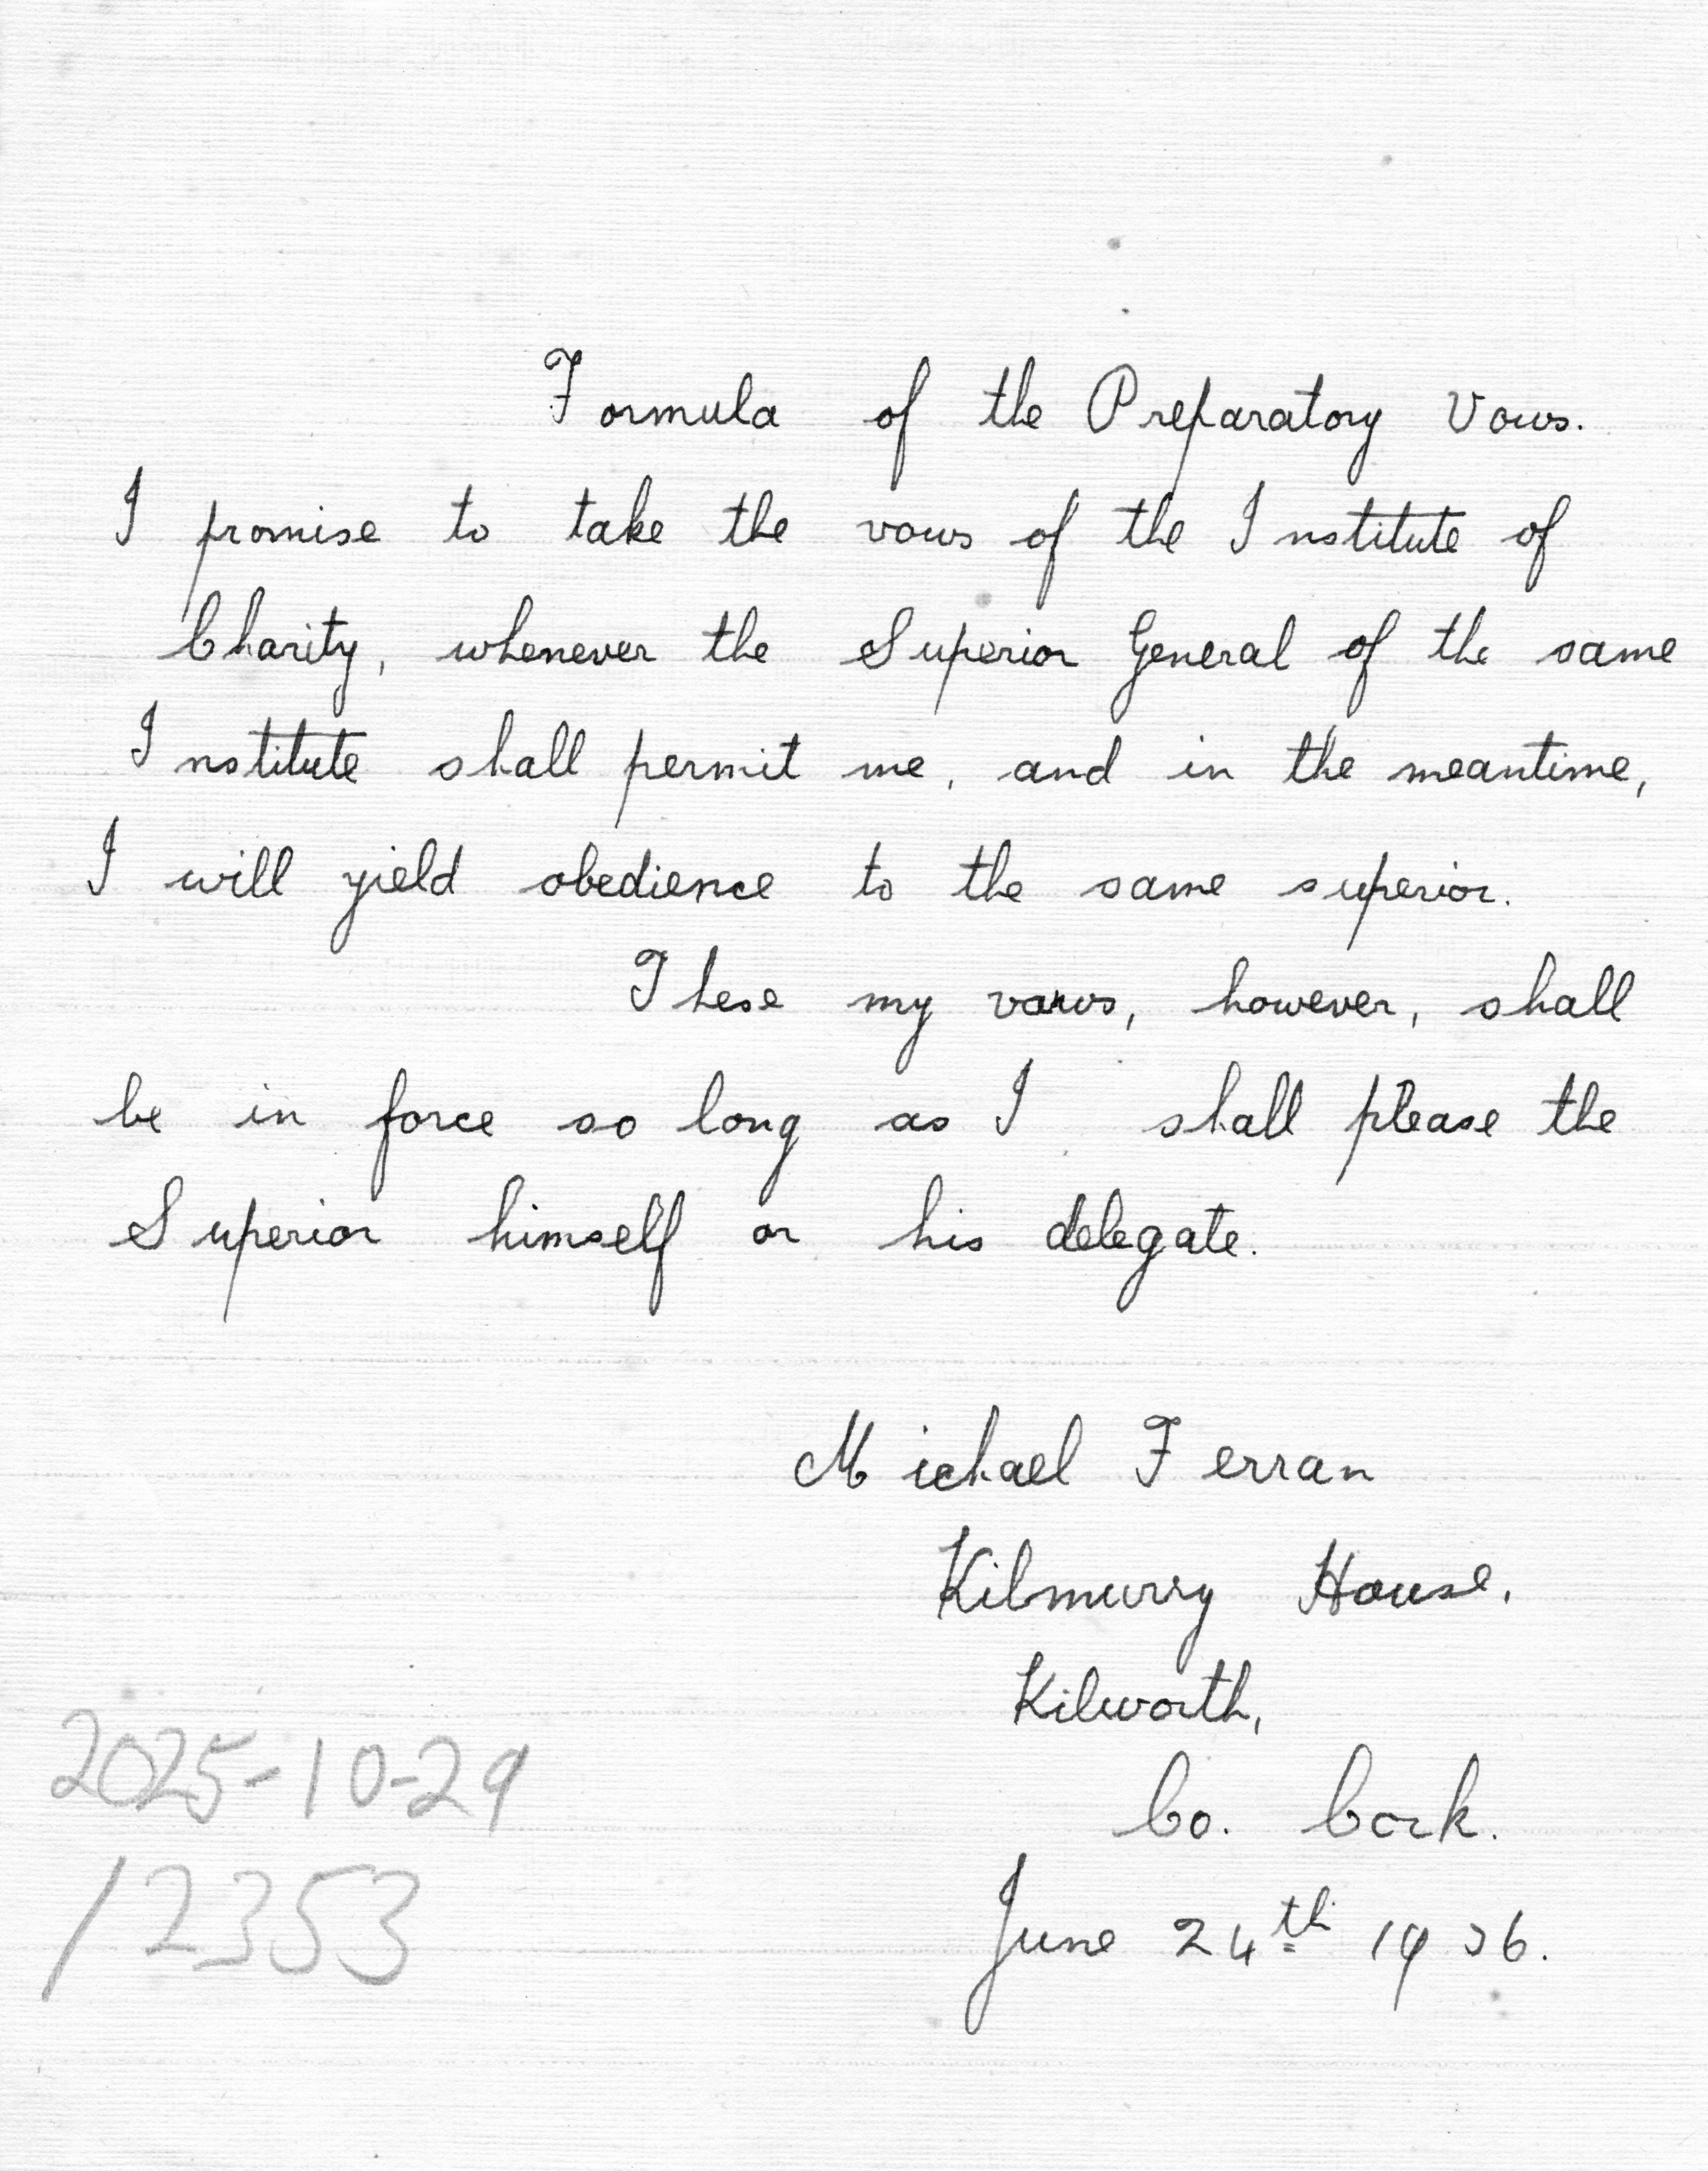 Formula of the Preparatory Vows.
I promise to take the vows of the Institute of
Charity, whenever the Superior General of the same
Institute shall permit me, and in the meantime,
I will yield obedience to the same superior.
These my vows, however, shall
be in force so long as I shall please the
Superior himself or his delegate.
Michael Ferran
Kilmurry House,
Kilworth,
Co. Cork.
June 24th 1936.
2025-10-29
/2353